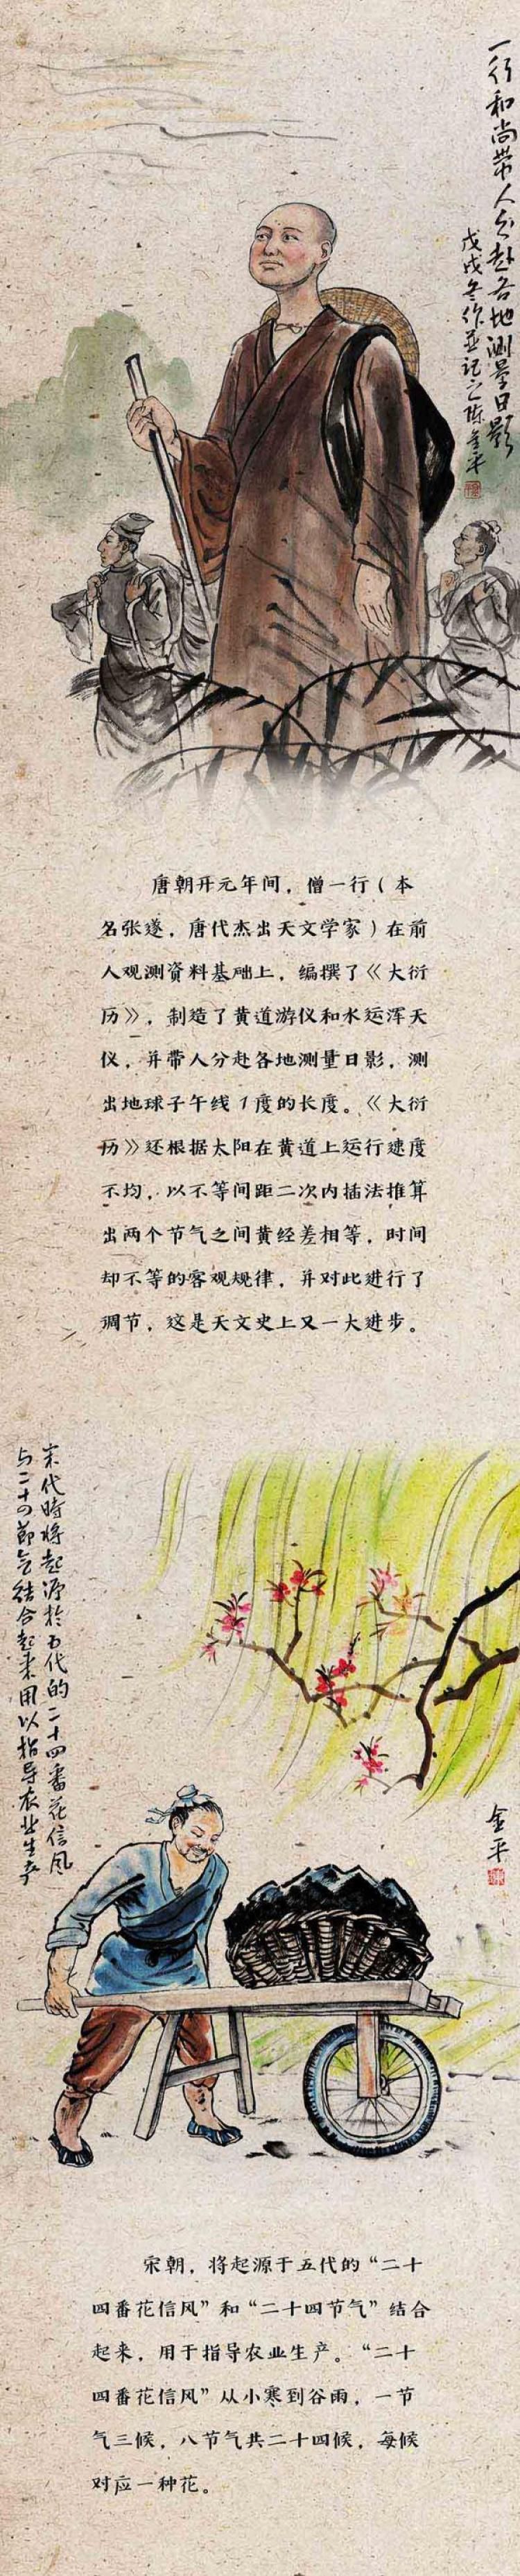 一行和尚带人分赴各地测量日影
戊戌冬作并记之陈金平
唐朝开元年间，僧一行（本
名张遂，唐代杰出天文学家）在前
人观测资料基础上，编撰了《大衍
历》，制造了黄道游仪和水运浑天
仪，并带人分赴各地测量日影，测
出地球子午线1度的长度。《大衍
历》还根据太阳在黄道上运行速度
不均，以不等间距二次内插法推算
出两个节气之间黄经差相等，时间
却不等的客观规律，并对此进行了
调节，这是天文史上又一大进步。
宋代時将起源於五代的二十四番花信風
与二十四節气结合起来用以指导农业生产
金平
宋朝，将起源于五代的“二十
四番花信风”和“二十四节气”结合
起来，用于指导农业生产。“二十
四番花信风”从小寒到谷雨，一节
气三候，八节气共二十四候，每候
对应一种花。